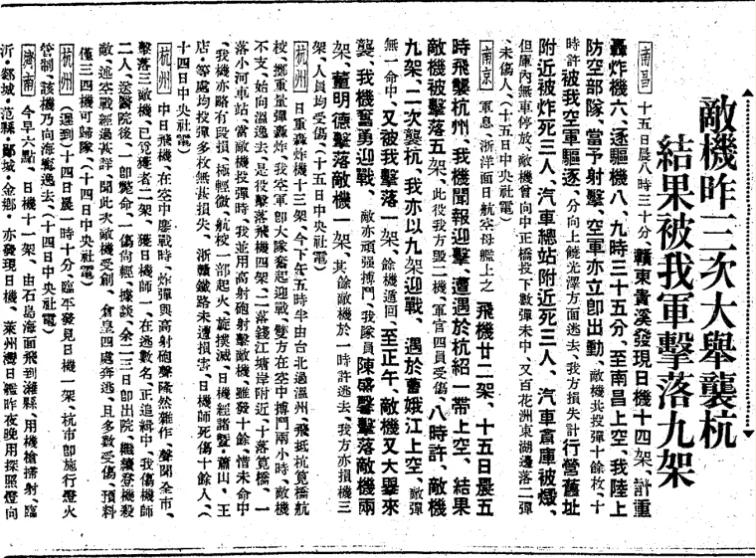 敵機昨三次大舉襲杭
結果被我軍擊落九架
南昌 十五日晨八時三十分、贛東貴溪發現日機十四架、計重
轟炸機六、逐驅機八、九時三十五分、至南昌上空、我陸上
防空部隊、當予射擊、空軍亦立即出動、敵機共投彈十餘枚、十
時許被我空軍驅逐、分向上饒光澤方面逃去、我方損失計行營舊址
附近被炸死三人、汽車總站附近死三人、汽車蓆庫被燬、
但庫內無車停放、敵機曾向中正橋投下數彈未中、又百花洲東湖邊落二彈
、未傷人、（十五日中央社電）
南京 軍息、浙洋面日航空母艦上之 飛機廿二架、十五日晨五
時飛襲杭州、我機聞報迎擊、遭遇於杭紹一帶上空、結果
敵機被擊落五架、此役我方毀二機、軍官四員受傷、八時許、敵機
九架、二次襲杭、我亦以九架迎戰、遇於曹娥江上空、敵彈
無一命中、又被我擊落一架、餘機遁回、至正午、敵機又大舉來
襲、我機奮勇迎戰、敵亦頑强搏鬥、我隊員陳盛馨擊落敵機兩
架、董明德擊落敵機一架、其餘敵機於一時許逃去、我方亦損機三
架、人員均受傷、（十五日中央社電）
杭州 日重轟炸機十三架、今下午五時半由台北過溫州、飛抵杭筧橋航
校、擲重量彈轟炸、我空軍即大隊奮起迎戰、雙方在空中搏鬥兩小時、敵機
不支、始向溫逸去、是役擊落飛機四架、二落錢江塘岸附近、十落筧橋、一
落小河車站、當敵機投彈時、我並用高射砲射擊敵機、雖發十餘、惜未命中
、我機亦略有段損、極輕微、航校一部起火、旋撲滅、日機經諸暨・蕭山、王
店・等處均投彈多枚無甚損失、浙贛鐵路未遭損害、日機師死傷十餘人、（
十四日中央社電）
杭州 中日飛機、在空中鏖戰時、炸彈與高射砲聲隆然雜作、聲聞全市、
擊落三敵機、已覓獲者二架、獲日機師一、在逃數名、正追緝中、我傷機師
二人、送醫院後、一部斃命、一傷尚輕、據談、余二三日即出院、繼續登機殺
敵、述空戰經過甚詳、聞此次敵機受創、倉皇四處奔逃、且多數受傷、預料
僅三四機可歸隊、（十四日中央社電）
杭州 （遲到）十四日晨一時十分、臨平發見日機一架、杭市即施行燈火
管制、該機乃向海鹽逸去、（十四日中央社電）
濟南 今早六點、日機十一架、由石島海面飛到濰縣、用機槍掃射、臨
沂・郯城・范縣・鄄城・金鄉・亦發現日機、萊州灣日艦昨夜晚用探照燈向